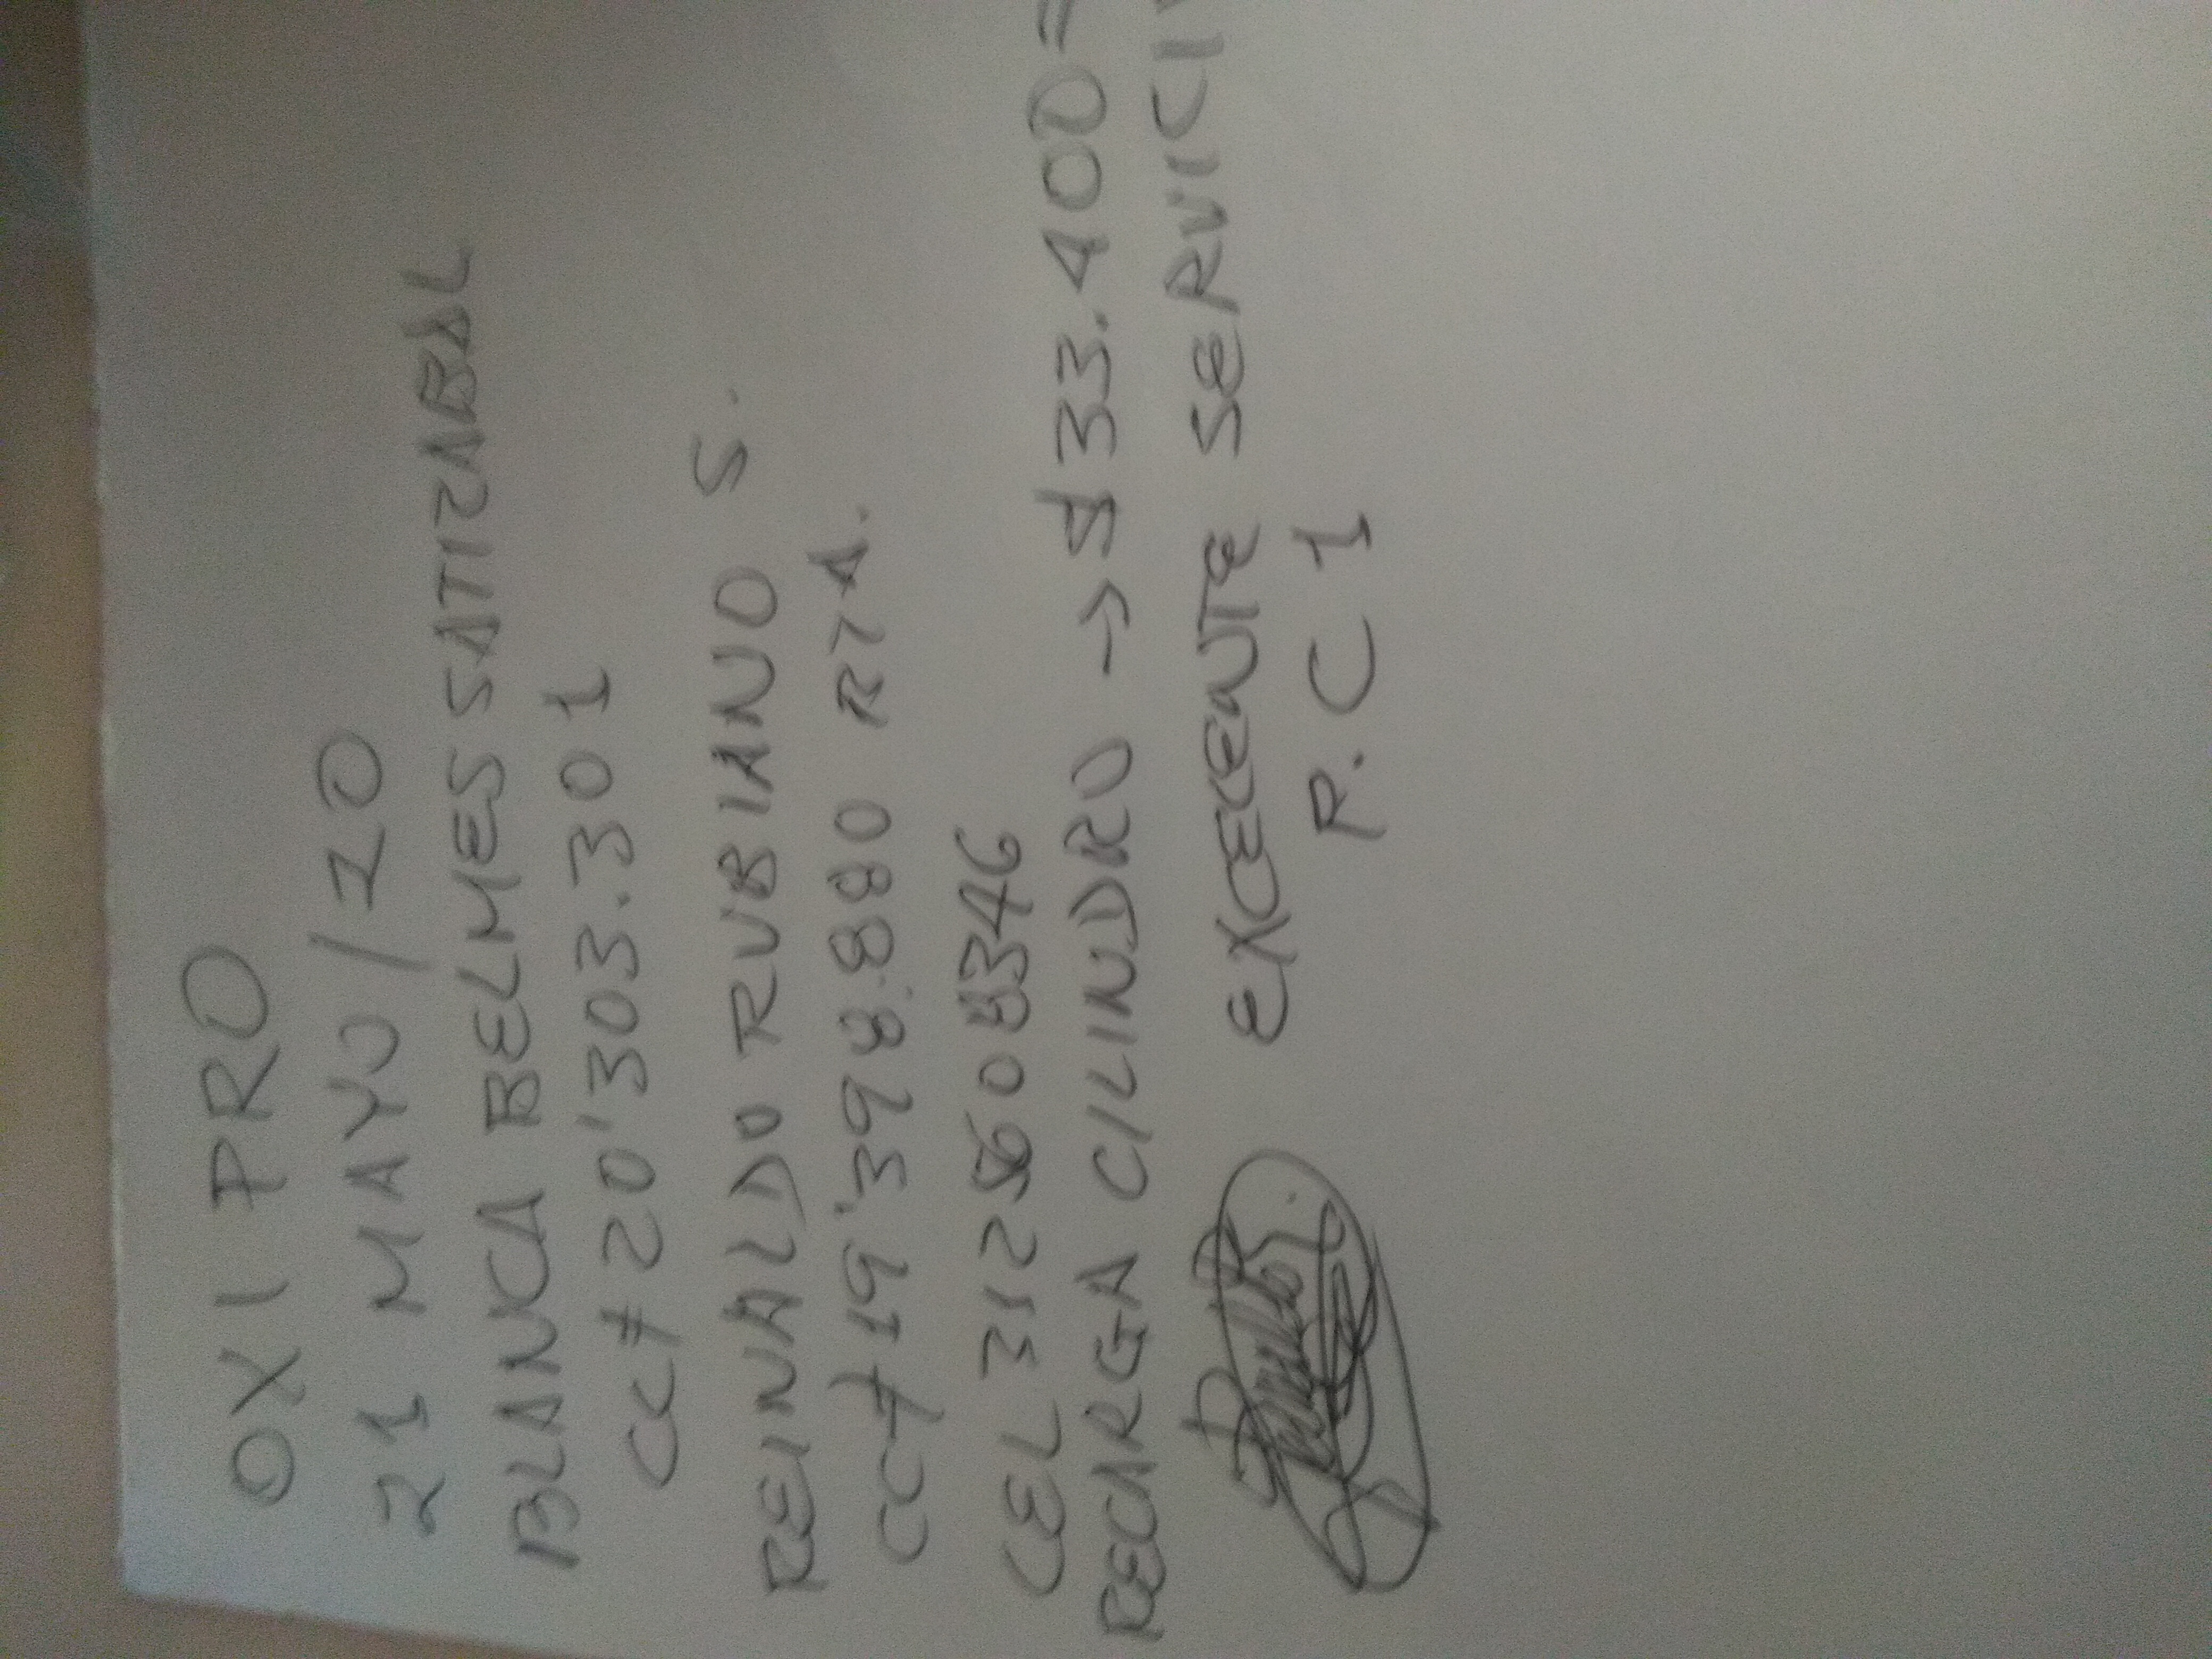 OXI PRO
21 MAYO/20
BLANCA BELMES SATIZABAL
CC# 20'303.301
REINALDO RUBIANO S.
CC# 19'398.880 RTA.
CEL 3125608346
RECARGA CILINDRO → $33.400=
EXCECENTE SERVICI
P.C 1